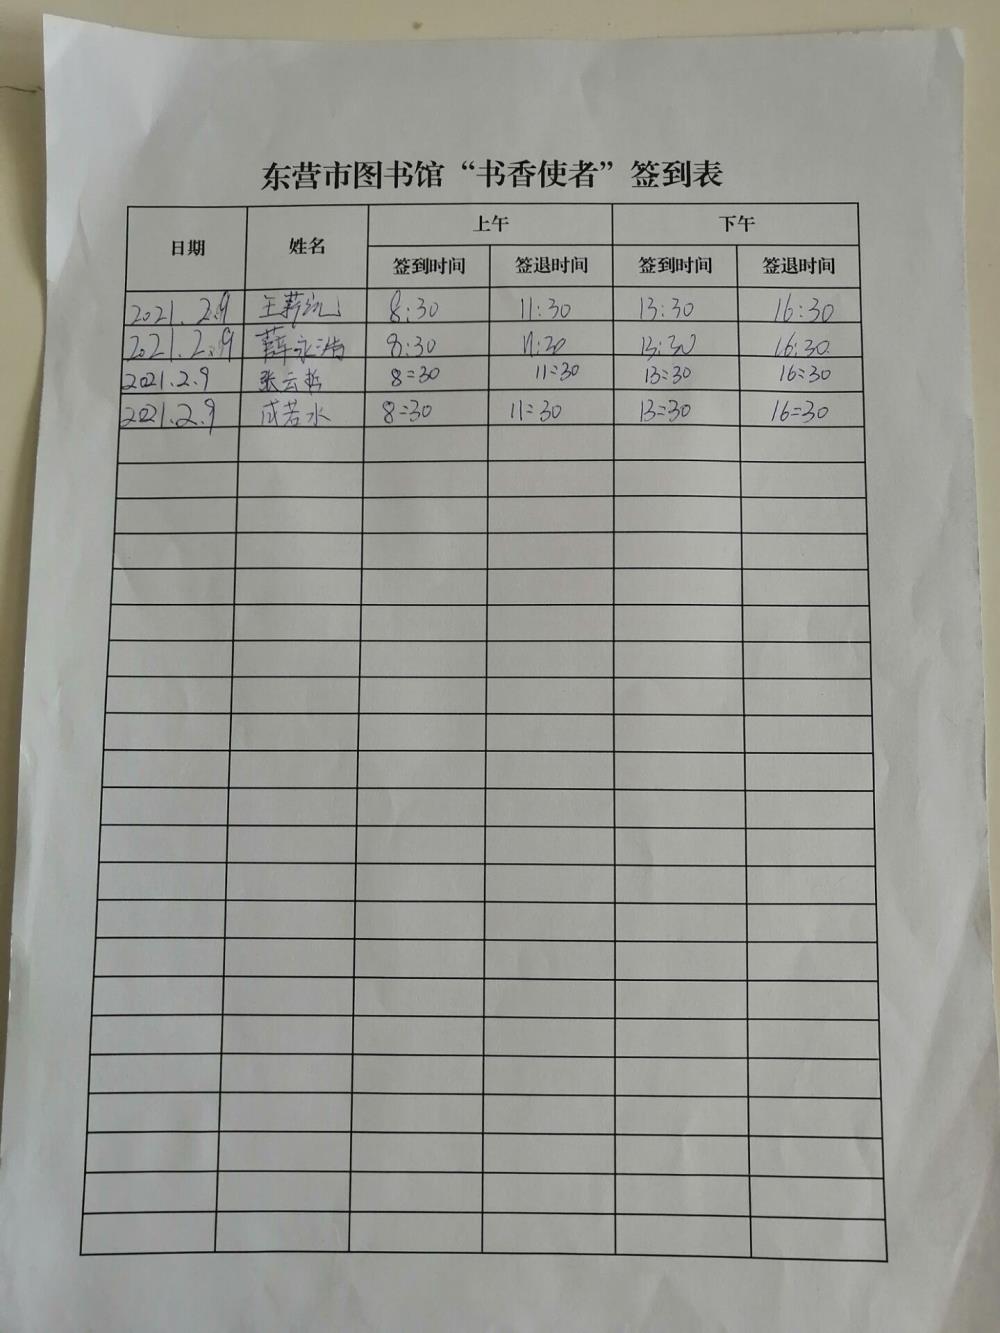 东营市图书馆“书香使者”签到表
日期 姓名 上午 下午
签到时间 签退时间 签到时间 签退时间
2021.2.9 王薪 8:30 11:30 13:30 16:30
2021.2.9 薛永浩 8:30 11:30 13:30 16:30
2021.2.9 张云哲 8:30 11:30 13:30 16:30
2021.2.9 成若水 8:30 11:30 13:30 16:30